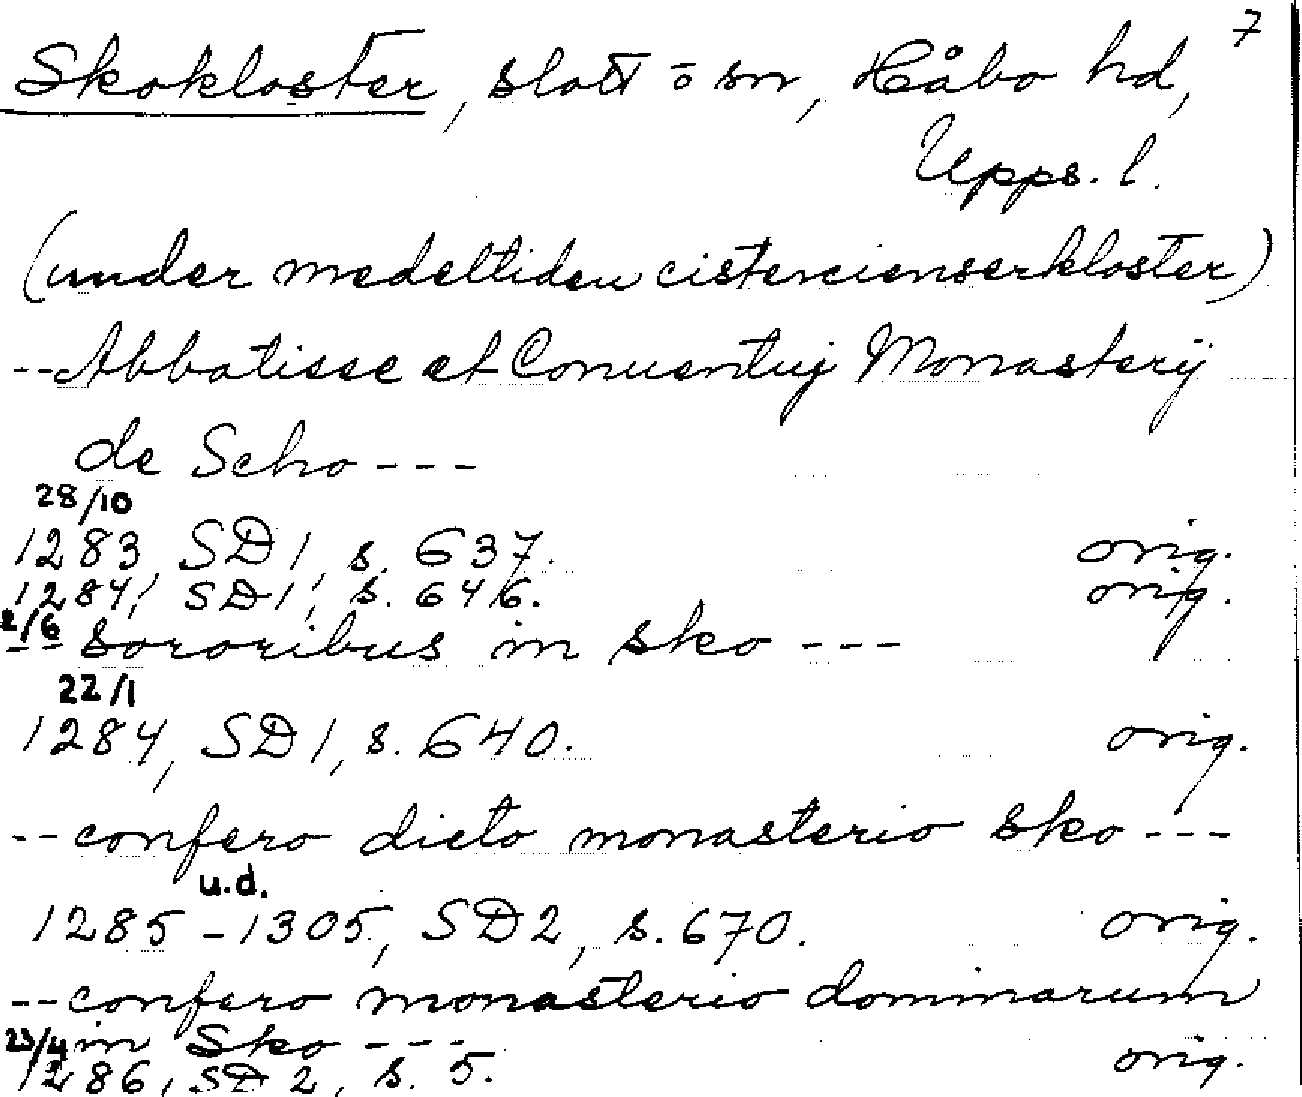 7
Skokloster, slott o sn, Håbo hd,
Upps. l.
(under medeltiden cistercienserkloster)
--Abbatisse et Conuentuj Monasterij
de Scho ---
28/10
1283, SD1, s. 637. orig.
1284, SD1, s. 646. orig.
2/6
-- sororibus in sko ---
22/1
1284, SD1, s. 640. orig.
--confero dicto monasterio sko ---
u.d.
1285-1305, SD2, s. 670. orig.
--confero monasterio dominarum
in Sko ---
23/4
1286, SD2, s. 5. orig.